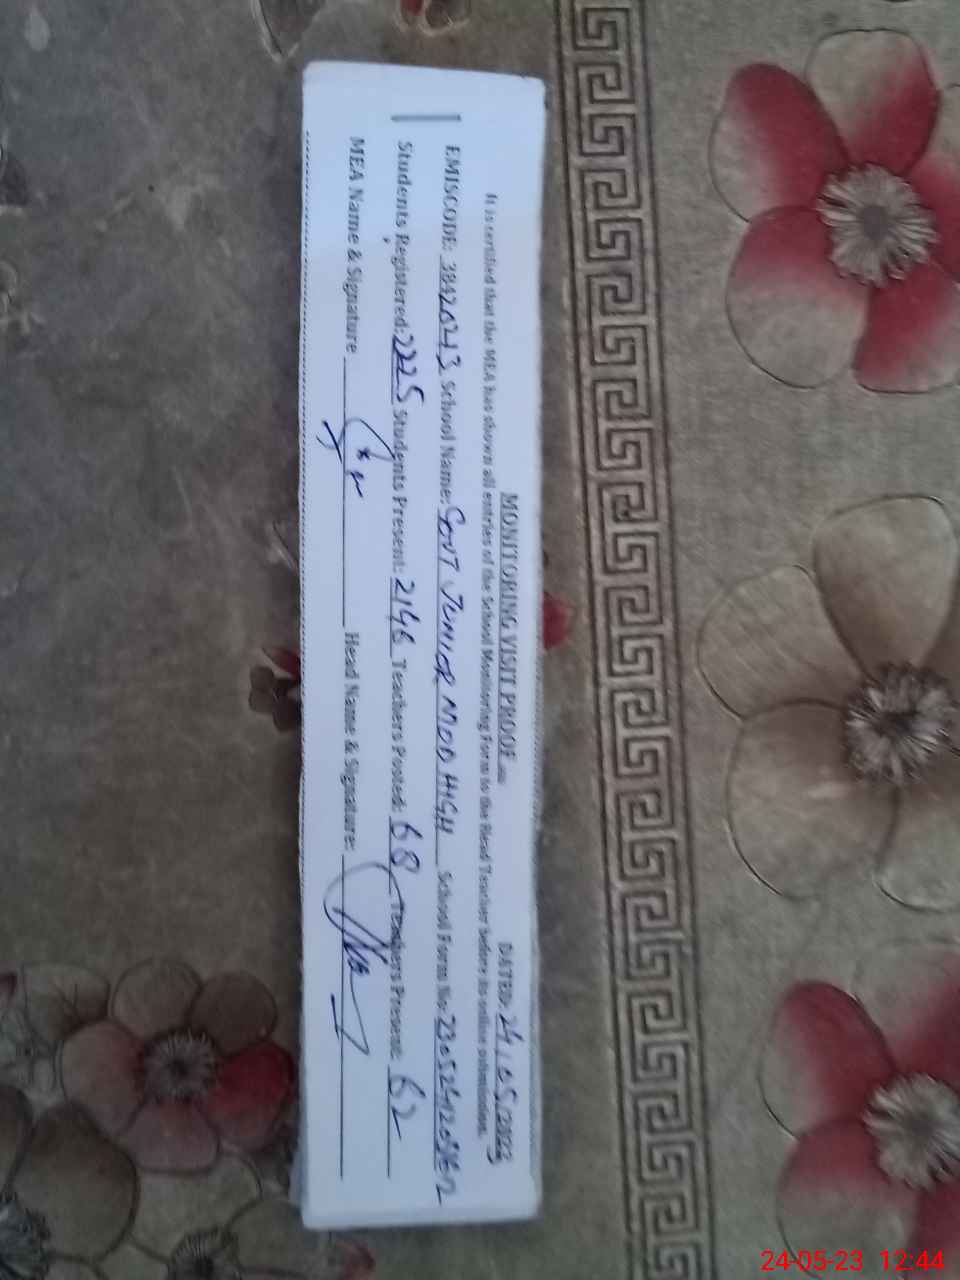 MONITORING VISIT PROOF DATED: 24/05/2023
It is certified that the MEA has shown all entries of the School Monitoring Form to the Head Teacher before its online submission.
EMISCODE: 38420243 School Name: GOVT JUNIOR MOD HIGH School Form No:
Students Registered: 2225 Students Present: 2146 Teachers Posted: 68 Teachers Present: 62
MEA Name & Signature Head Name & Signature:
24-05-23 12:44